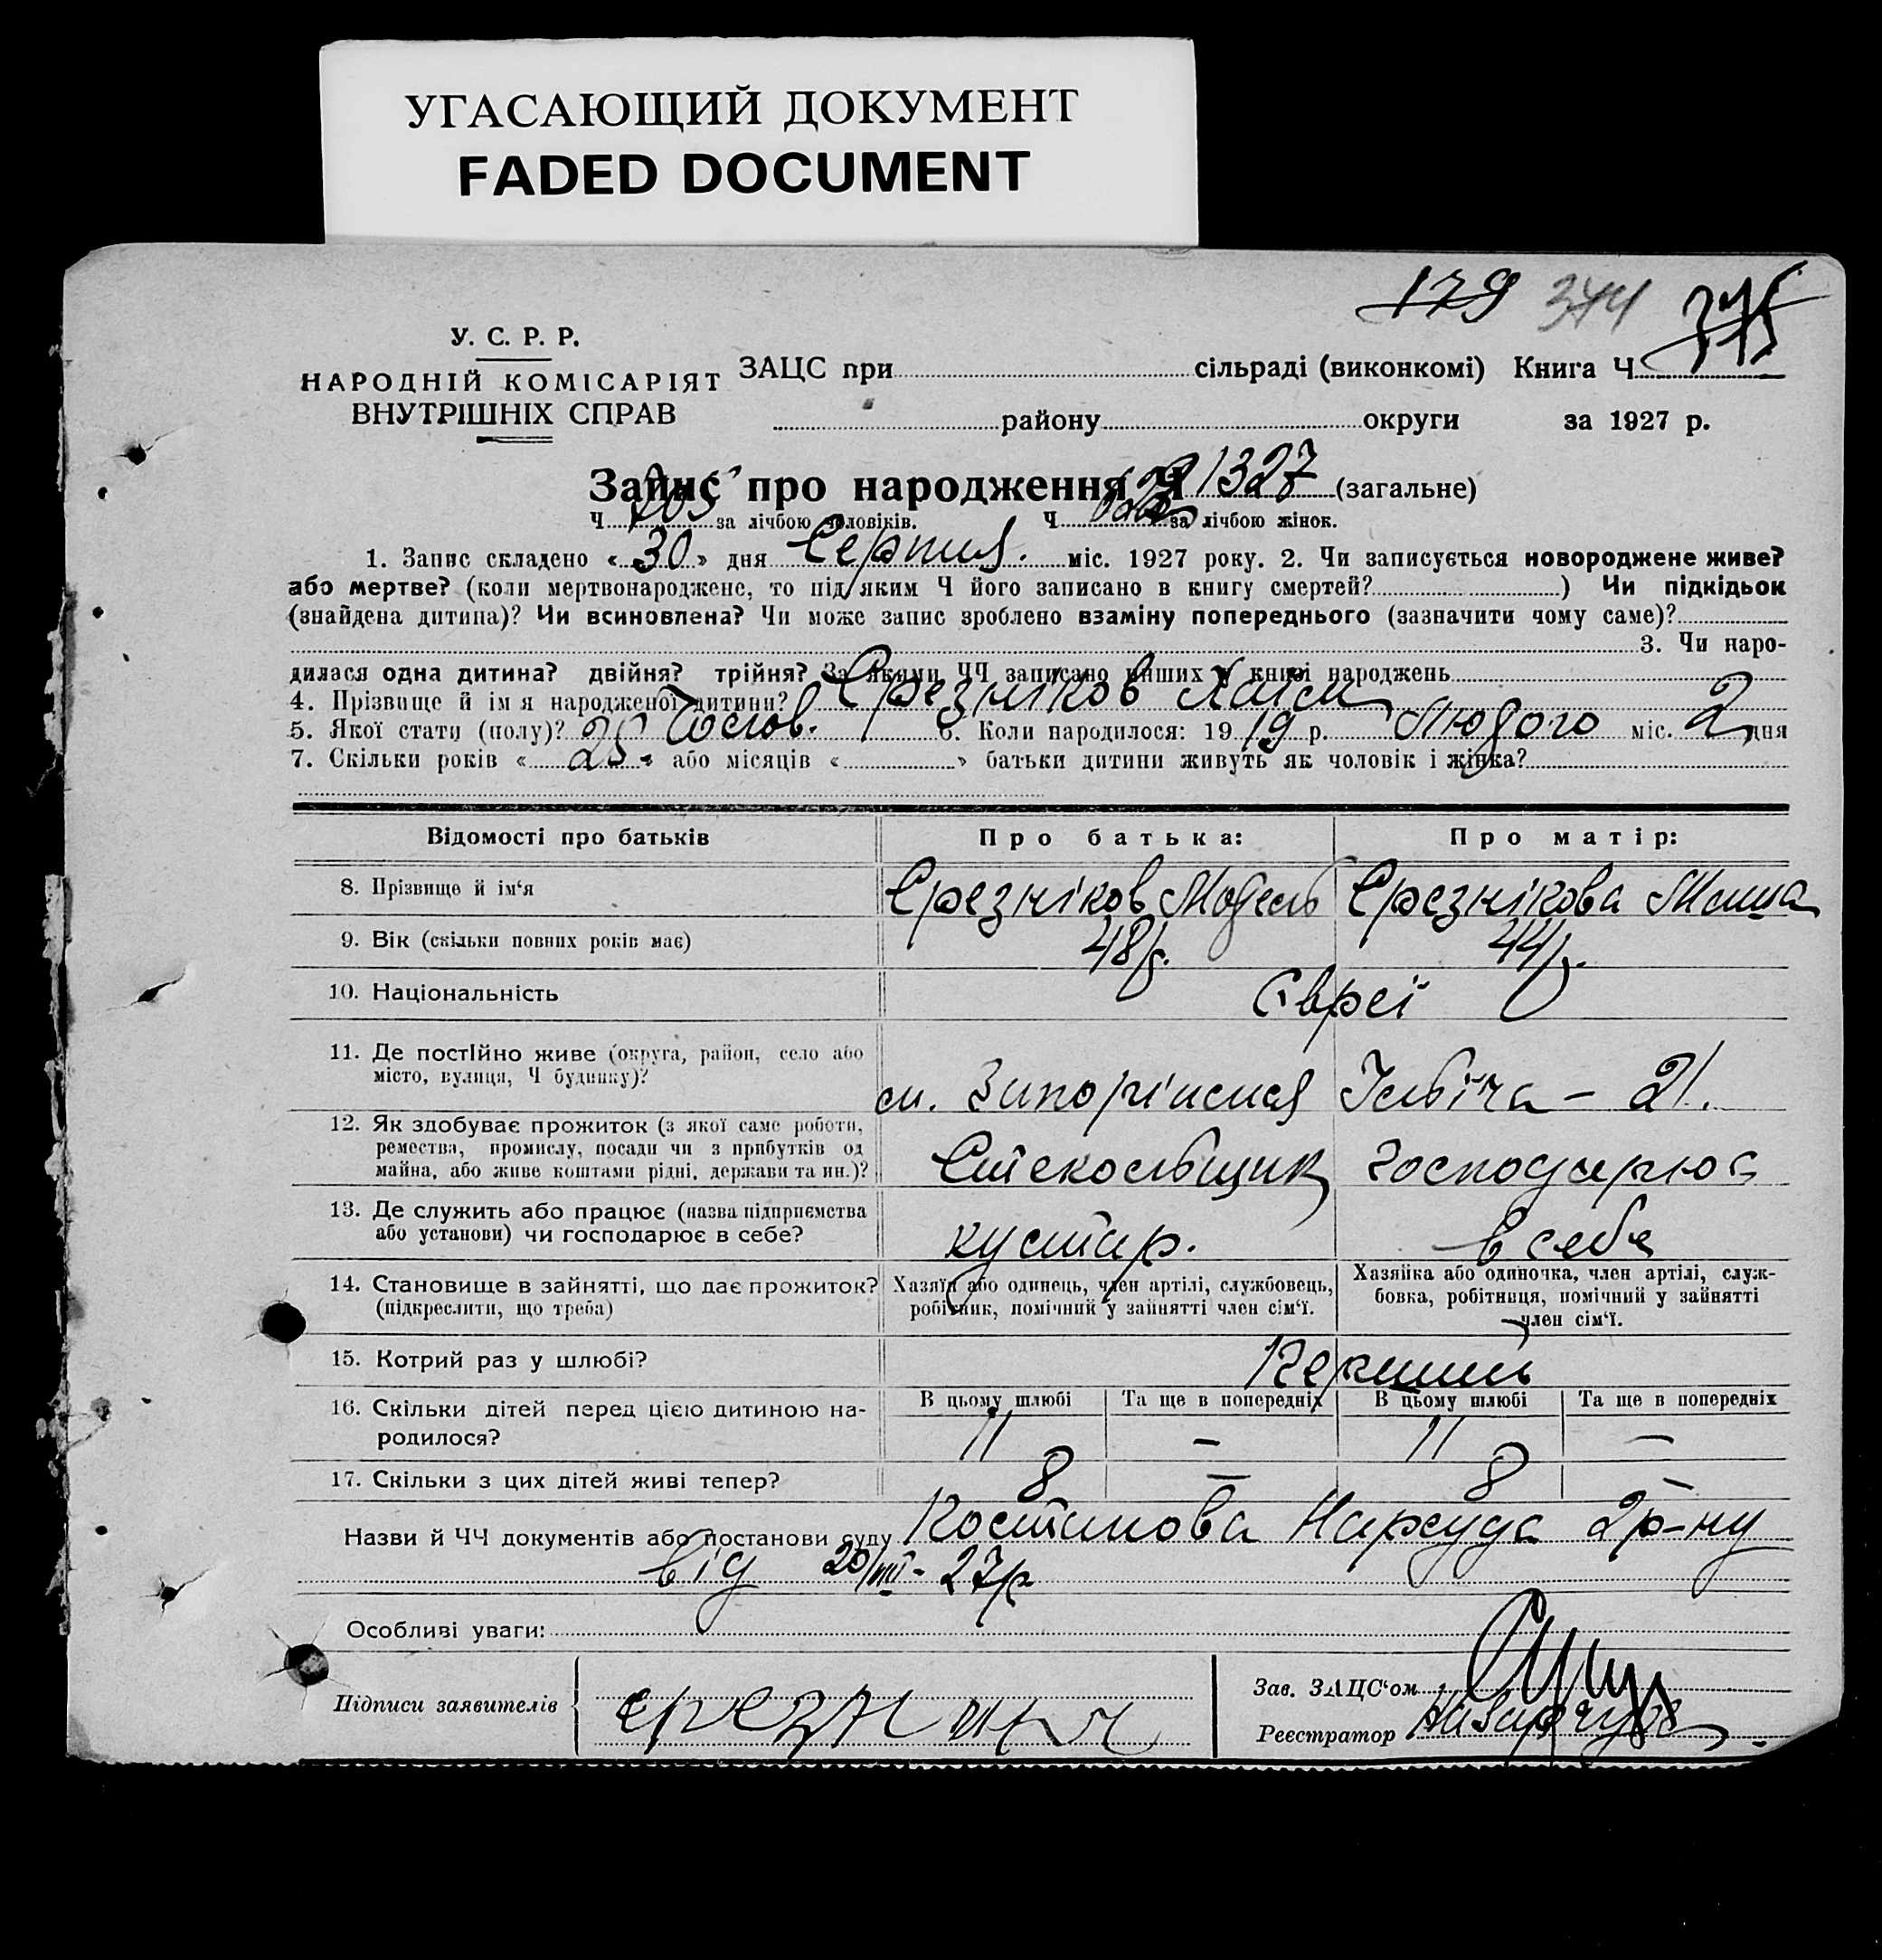 УГАСАЮЩИЙ ДОКУМЕНТ
FADED DOCUMENT
179 344 375
У. С. Р. Р.
НАРОДНІЙ КОМІСАРІЯТ
ВНУТРІШНІХ СПРАВ
ЗАЦС при сільраді (виконкомі) Книга Ч
району округи за 1927 р.
Запис про народження Ч 1327 (загальне)
Ч 705 за лічбою чоловіків. Ч за лічбою жінок.
1. Запис складено «30» дня Серпня. міс. 1927 року. 2. Чи записується новороджене живе?
або мертве? (коли мертвонароджене, то під яким Ч його записано в книгу смертей? ) Чи підкідьок
(знайдена дитина)? Чи всиновлена? Чи може запис зроблено взаміну попереднього (зазначити чому саме)?
3. Чи наро-
дилася одна дитина? двійня? трійня? За якими ЧЧ записано инших у книзі народжень
4. Прізвище й ім я народженої дитини? Срезніков Хаім
5. Якої стати (полу)? Чолов. 6. Коли народилося: 19 19 р. Лютого міс. 2 дня
7. Скільки років «25» або місяців « » батьки дитини живуть як чоловік і жінка?
Відомості про батьків Про батька: Про матір:
8. Прізвище й ім‘я Срезніков Мотель Срезнікова Маша
9. Вік (скільки повних років має) 48р. 44р.
10. Національність Євреї
11. Де постійно живе (округа, район, село або
місто, вулиця, Ч будинку)? м. Запоріжжя Ілвіча – 21.
12. Як здобуває прожиток (з якої саме роботи,
ремества, промислу, посади чи з прибутків од
майна, або живе коштами рідні, держави та ин.)? Стекольщик господарює
13. Де служить або працює (назва підприємства
або установи) чи господарює в себе? кустар. в себе
14. Становище в зайнятті, що дає прожиток?
(підкреслити, що треба)
Хазяїн або одинець, член артілі, службовець,
робітник, помічний у зайнятті член сім‘ї.
Хазяйка або одиночка, член артілі, служ-
бовка, робітниця, помічний у зайнятті
член сім‘ї.
15. Котрий раз у шлюбі? Перший
16. Скільки дітей перед цією дитиною на-
родилося?
В цьому шлюбі Та ще в попередніх В цьому шлюбі Та ще в попередніх
11 – 11 –
17. Скільки з цих дітей живі тепер? 8 – 8 –
Назви й ЧЧ документів або постанови суду Постанова Нарсуда 2р-ну
від 20/VII - 27р
Особливі уваги:
Підписи заявителів
Зав. ЗАЦС‘ом
Реєстратор Назарчук